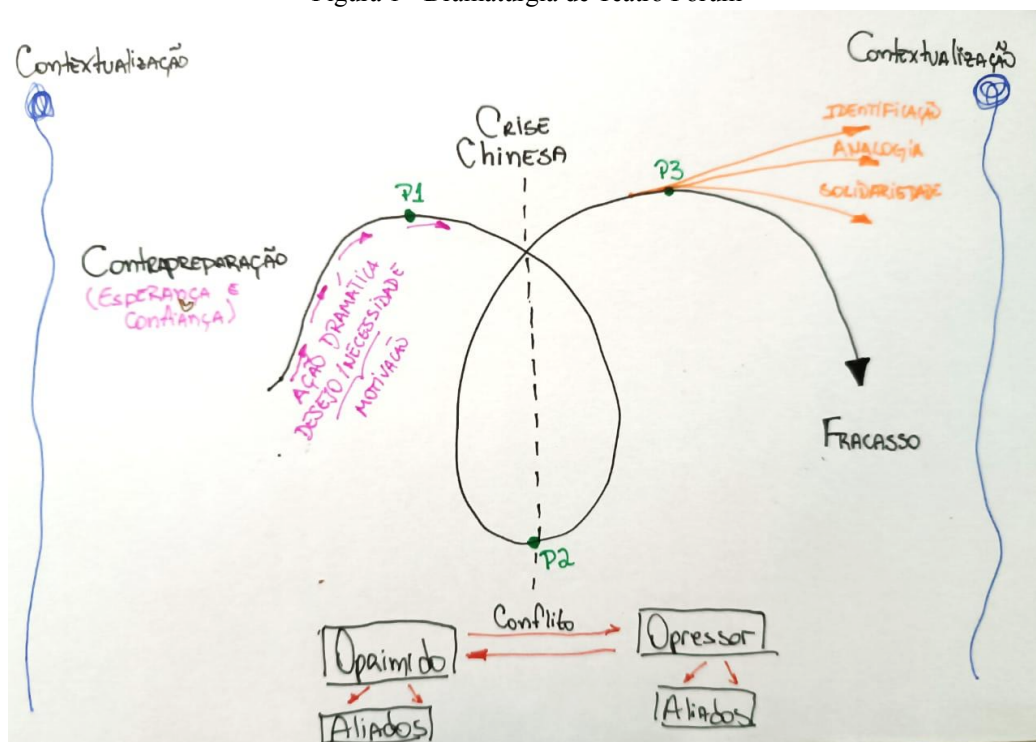 Figura 1 - Dramaturgia de Teatro Fórum
Contextualização
Contextualização
CRISE
CHINESA
IDENTIFICAÇÃO
ANALOGIA
SOLIDARIEDADE
P1
P3
CONTRAPREPARAÇÃO
(ESPERANÇA E
CONFIANÇA)
AÇÃO DRAMÁTICA
DESEJO/NECESSIDADE
MOTIVAÇÃO
FRACASSO
P2
Conflito
Oprimido
Opressor
Aliados
Aliados